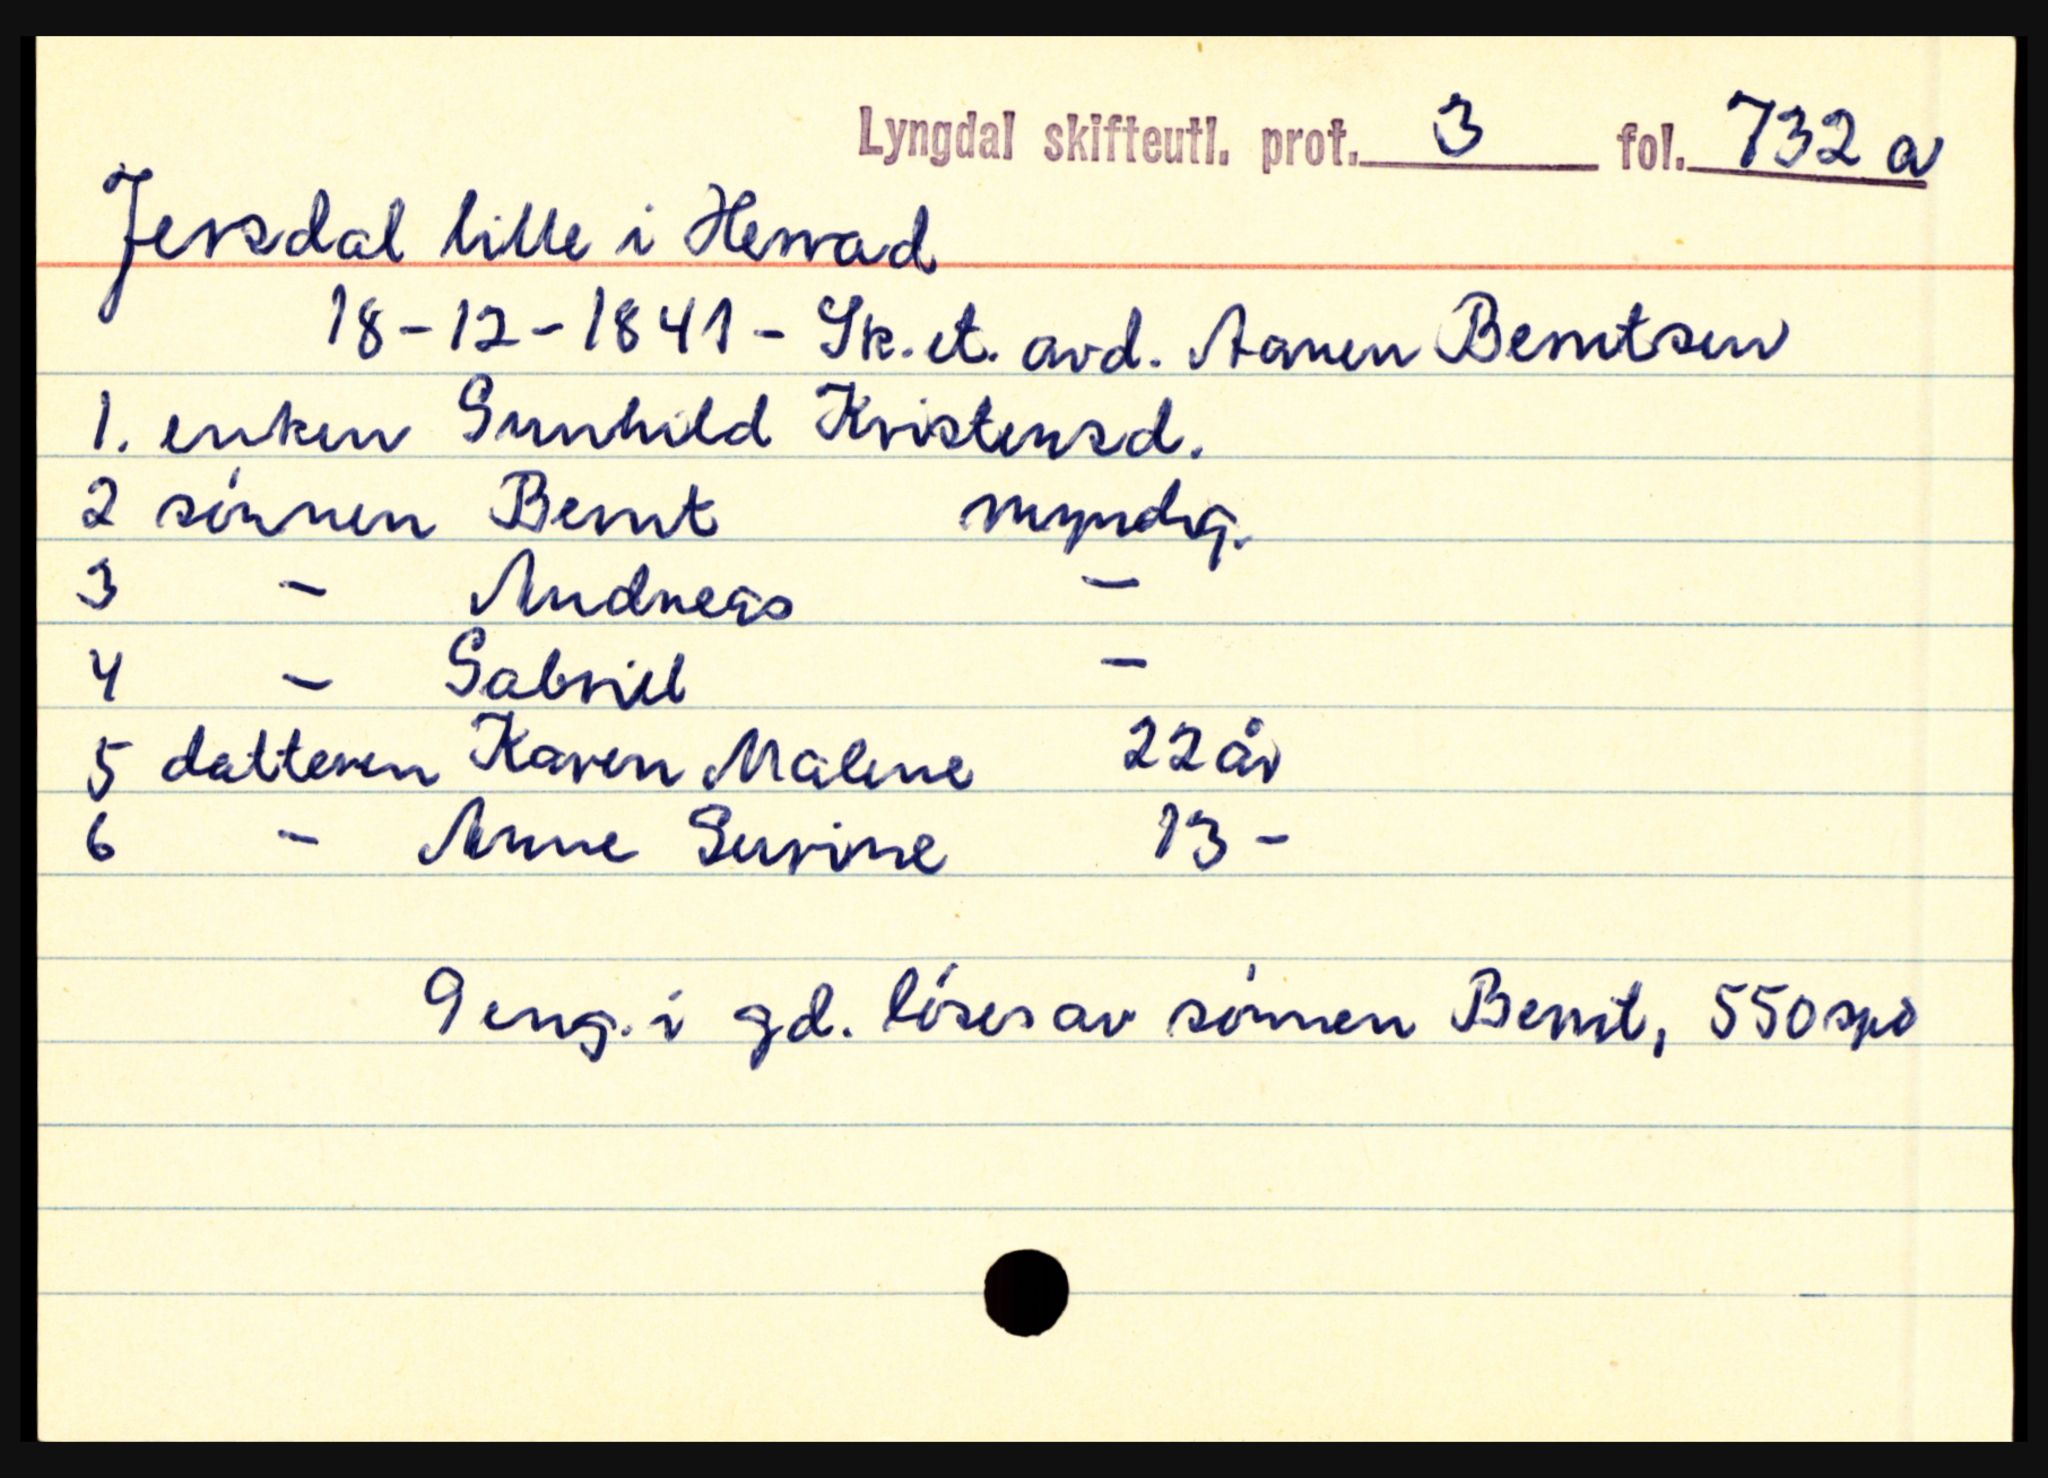 Lyngdal skifteutl. prot. 3 fol. 732 a
Jersdal lille i Herrad
18-12-1841 - Sk. et. avd. Aanen Berntsen
1. enken Gunhild Kristensd.
2 sønnen Bernt myndig.
3 - Andreas -
4 - Gabriel -
5 datteren Karen Malene 22 år
6 - Anne Severine 13 -
9 eng. i gd. løses av sønnen Bernt, 550 spd